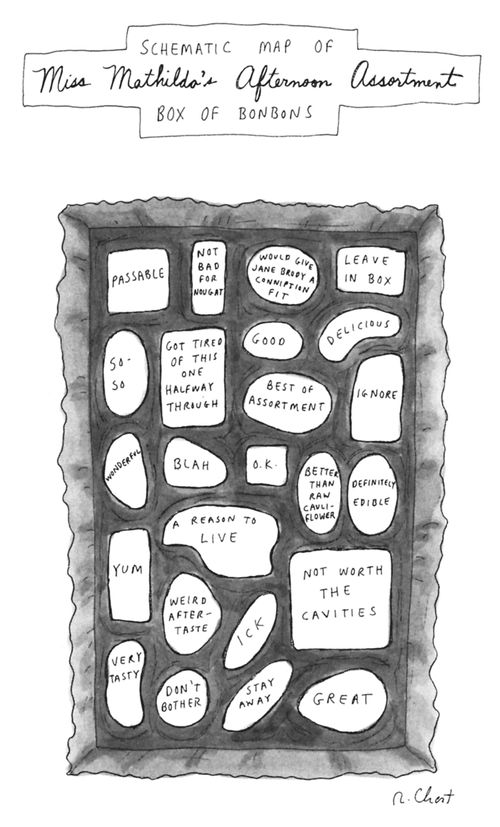 SCHEMATIC MAP OF
Miss Mathilda's Afternoon Assortment
BOX OF BONBONS
PASSABLE
NOT
BAD
FOR
NOUGAT
WOULD GIVE
JANE BRODY A
CONNIPTION
FIT
LEAVE
IN BOX
SO-
SO
GOT TIRED
OF THIS
ONE
HALFWAY
THROUGH
GOOD
DELICIOUS
BEST OF
ASSORTMENT
IGNORE
WONDERFUL
BLAH
O.K.
BETTER
THAN
RAW
CAULI-
FLOWER
DEFINITELY
EDIBLE
A REASON TO
LIVE
YUM
WEIRD
AFTER-
TASTE
ICK
NOT WORTH
THE
CAVITIES
VERY
TASTY
DON'T
BOTHER
STAY
AWAY
GREAT
R. Chast